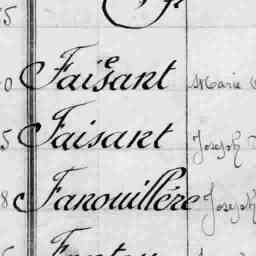 5
0 Faisant Marie
5 Faisant Joseph
8 Fanouillére Joseph